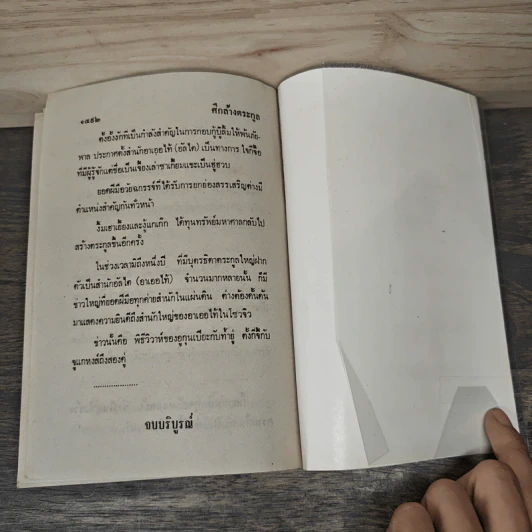 ๑๔๕๒ ศึกล้างตระกูล
ตั้งอั้งงักที่เป็นกำลังสำคัญในการกอบกู้บู๊ลิ้มให้พ้นภัย-
พาล ประกาศตั้งสำนักอาเยอไท้ (อัสไค) เป็นทางการ ใจกี่จือ
ที่มีผู้รู้จักแต่ชื่อเป็นเจี้ยงเล่าซาเกี้ยมแชะเป็นฮู่ฮวบ
ยอดฝีมือวัยฉกรรจ์ที่ได้รับการยกย่องสรรเสริญต่างมี
ตำแหน่งสำคัญกันทั่วหน้า
งิ้มเฮาเฮี้ยงและงู้แกเก็ก ได้ทุนทรัพย์มหาศาลกลับไป
สร้างตระกูลขึ้นอีกครั้ง
ในช่วงเวลามิถึงหนึ่งปี ที่มีบุตรธิดาตระกูลใหญ่ฝาก
ตัวเป็นสำนักอัสไค (อาเยอไท้) จำนวนมากหลายนั้น ก็มี
ข่าวใหญ่ที่ยอดฝีมือทุกค่ายสำนักในแผ่นดิน ต่างต้องดั้นด้น
มาแสดงความยินดีถึงสำนักใหญ่ของอาเยอไท้ในโซวจิว
ข่าวนั้นคือ พิธีวิวาห์ของอูกุนเปียะกับท้ายู่ ตั้งกี่จี้กับ
ซูแกหงส์ถึงสองคู่
......................
จบบริบูรณ์